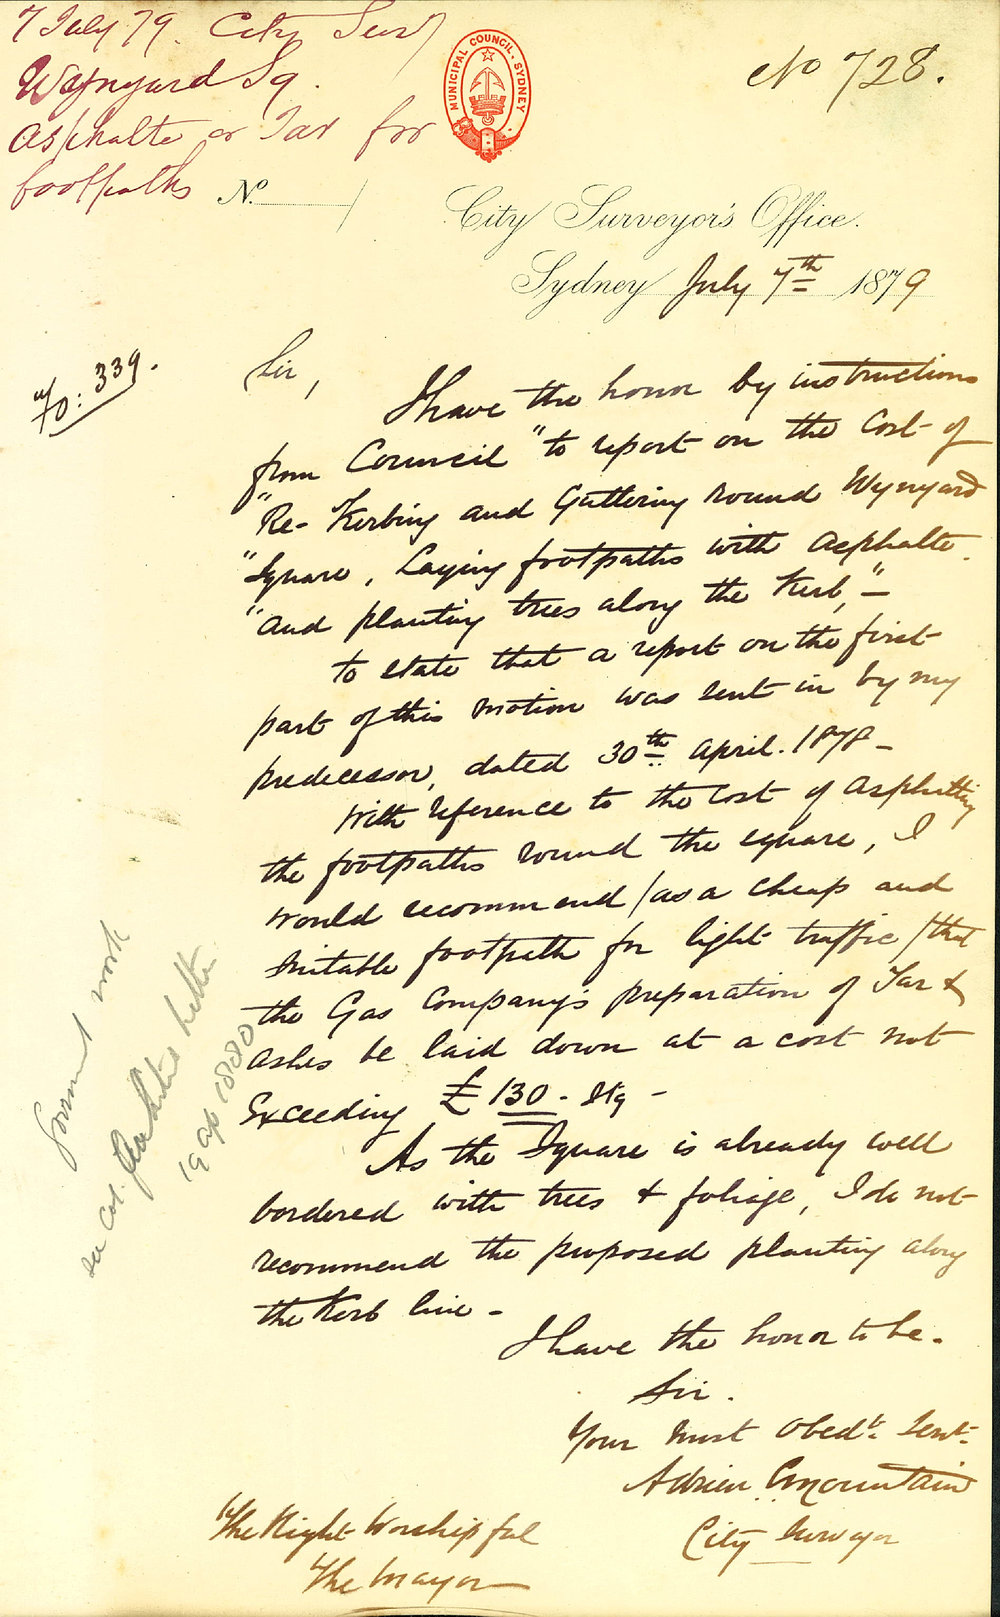 7 July 79. City Surv
Wynyard Sq.
Asphalte or Tar for
footpaths
MUNICIPAL COUNCIL. SYDNEY
No 728.
No.
City Surveyor's Office.
Sydney July 7th 1879
339.
Sir,
I have the honor by instructions
from Council "to report on the Cost of
"Re-Kerbing and Guttering round Wynyard
"Square, Laying footpaths with Asphalte
"and planting trees along the Kerb," –
to state that a report on the first
part of this motion was sent in by my
predecessor, dated 30th April. 1878 –
With reference to the Cost of Asphalting
the footpaths round the square, I
would recommend (as a cheap and
suitable footpath for light traffic) that
the Gas Company's preparation of Tar &
Ashes be laid down at a cost not
Exceeding £130 - Stg –
As the Square is already well
bordered with trees & foliage, I do not
recommend the proposed planting along
the Kerb line –
I have the honor to be.
Sir.
Your Most Obedt. Servt.
Adrien C Mountain
City Surveyor
The Right Worshipful
The Mayor
work
see Col.
letter
19 Ap 1880